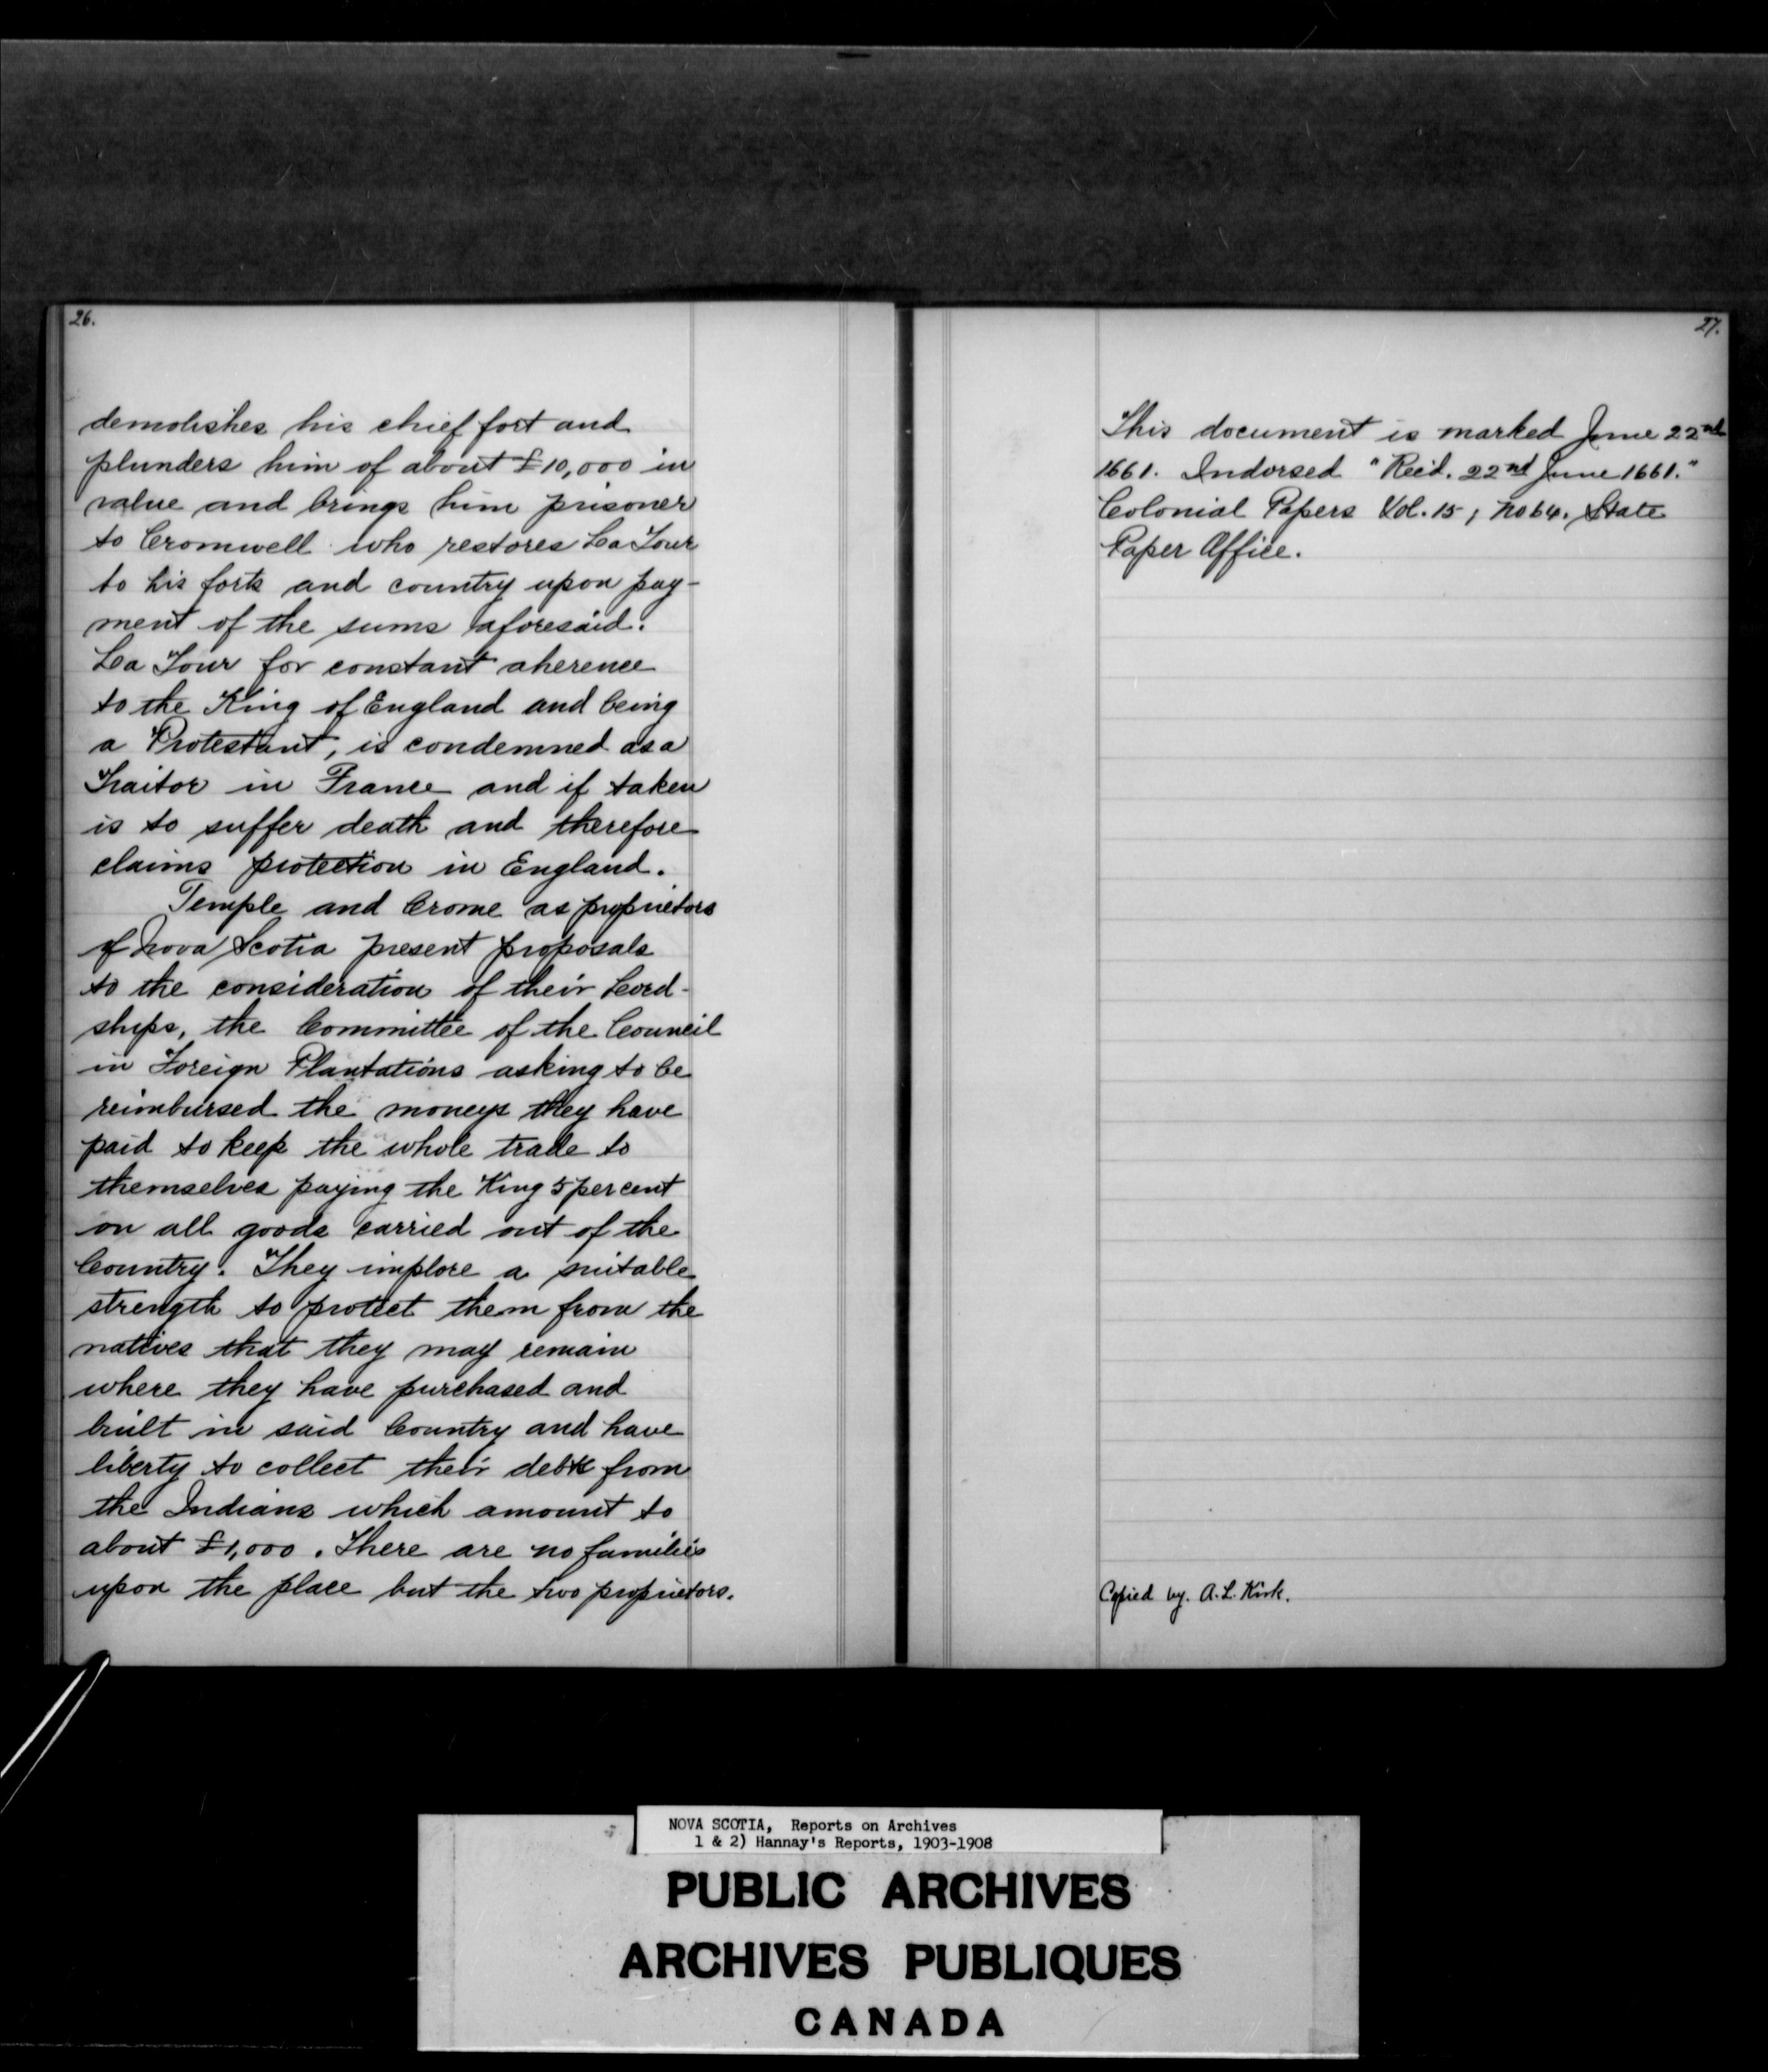 26.
demolishes his chief fort and
plunders him of about £10,000 in
value and brings him prisoner
to Cromwell who restores La Tour
to his forts and country upon pay-
ment of the sums aforesaid.
La Tour for constant aherence
to the King of England and being
a Protestant, is condemned as a
Traitor in France and if taken
is to suffer death and therefore
claims protection in England.
Temple and Crome as proprietors
of Nova Scotia present proposals
to the consideration of their Lord-
ships, the Committee of the Council
in Foreign Plantations asking to be
reimbursed the moneys they have
paid to keep the whole trade to
themselves paying the King 5 per cent
on all goods carried out of the
Country. They implore a suitable
strength to protect them from the
natives that they may remain
where they have purchased and
built in said Country and have
liberty to collect their debts from
the Indians which amount to
about £1,000. There are no families
upon the place but the two proprietors.
27.
This document is marked June 22nd
1661. Indorsed "Rec'd. 22nd June 1661."
Colonial Papers Vol. 15, No 64. State
Paper Office.
Copied by. A. L. Kirk.
NOVA SCOTIA, Reports on Archives
1 & 2) Hannay's Reports, 1903-1908
PUBLIC ARCHIVES
ARCHIVES PUBLIQUES
CANADA